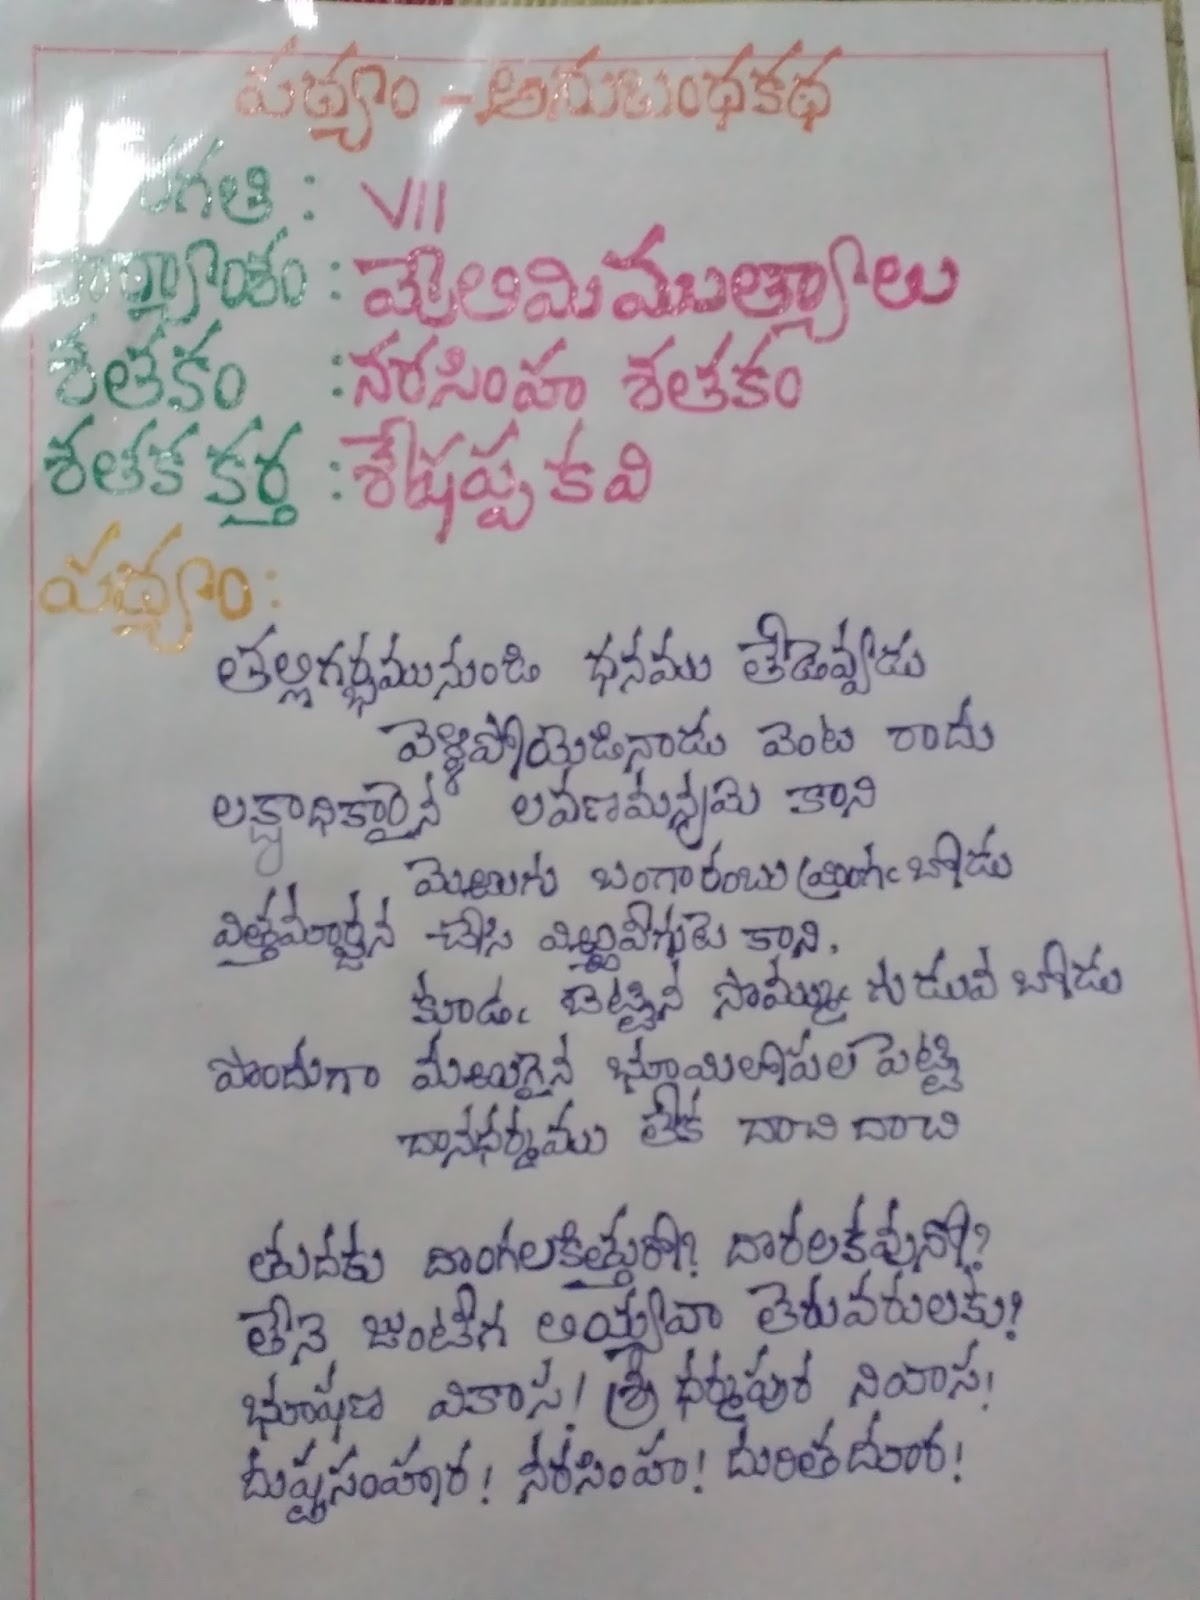 పద్యం - అనుబంధకథ
తరగతి : VII
పాఠ్యాంశం : మేలిమి ముత్యాలు
శతకం : నరసింహ శతకం
శతక కర్త : శేషప్ప కవి
పద్యం :
తల్లిగర్భమునుండి ధనము తేడెవ్వడు
వెళ్ళిపోయెడినాడు వెంట రాదు
లక్షాధికారైన లవణమన్నమె కాని
మెఱుగు బంగారంబు మ్రింగఁ బోడు
విత్తమార్జన చేసి విఱ్ఱవీగుటె కాని,
కూడఁ బెట్టిన సొమ్ముఁ గుడువ బోడు
పొందుగా మఱుగైన భూమిలోపల పెట్టి
దానధర్మము లేక దాచి దాచి
తుదకు దొంగలకిత్తురో? దొరలకవునో?
తేనె జుంటీగ లియ్యవా తెరువరులకు?
భూషణ వికాస! శ్రీ ధర్మపుర నివాస!
దుష్టసంహార! నరసింహ! దురితదూర!